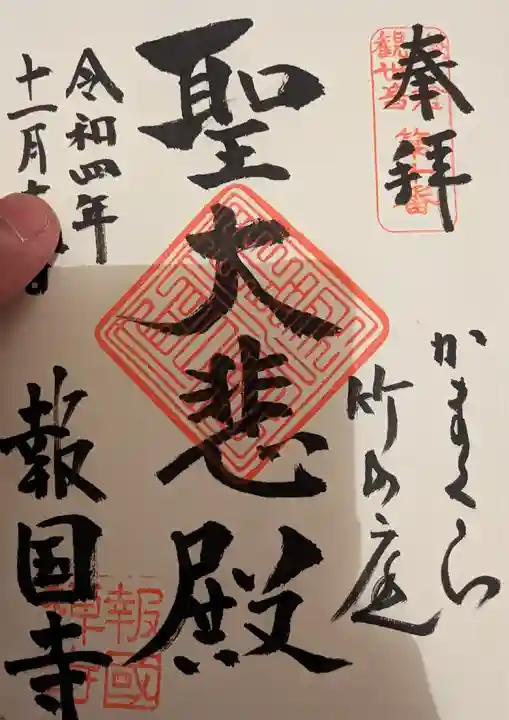 奉拝
観世音 第十番
かまくら
竹の庭
聖大悲殿
令和四年
十一月
報国寺
報國
禅寺